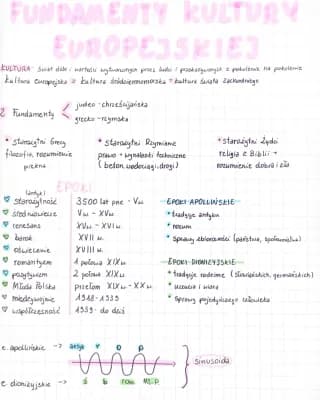 FUNDAMENTY KULTURY
EUROPEJSKIEJ
KULTURA - świat dóbr i wartości wytworzonych przez ludzi i przekazywanych z pokolenia na pokolenie
kultura europejska = kultura śródziemnomorska = kultura świata zachodniego
2 Fundamenty
judeo-chrześcijańska
grecko-rzymska
* starożytni Grecy
filozofia, rozumienie
piękna
* starożytni Rzymianie
prawo + wynalazki techniczne
(beton, wodociągi, drogi)
* starożytni Żydzi
religia z Biblii +
rozumienie dobra i zła
EPOKI
(antyk)
starożytność 3500 lat pne - Vw
średniowiecze Vw - XVw
renesans XVw - XVIw
barok XVIIw.
oświecenie XVIIIw
romantyzm 1 połowa XIXw
pozytywizm 2 połowa XIXw
Młoda Polska przełom XIXw - XXw.
międzywojnie 1918-1939
współczesność 1939 - do dziś
EPOKI APOLLIŃSKIE
* tradycje antyku
* rozum
* sprawy zbiorowości (państwa, społeczeństwa)
EPOKI DIONIZYJSKIE
* tradycje rodzime (słowiańskich, germańskich)
* uczucia i wiara
* sprawy pojedynczego człowieka
e. apollińskie ->
antyk r o p
sinusoida
e. dionizyjskie ->
ś b rom MŁ.P